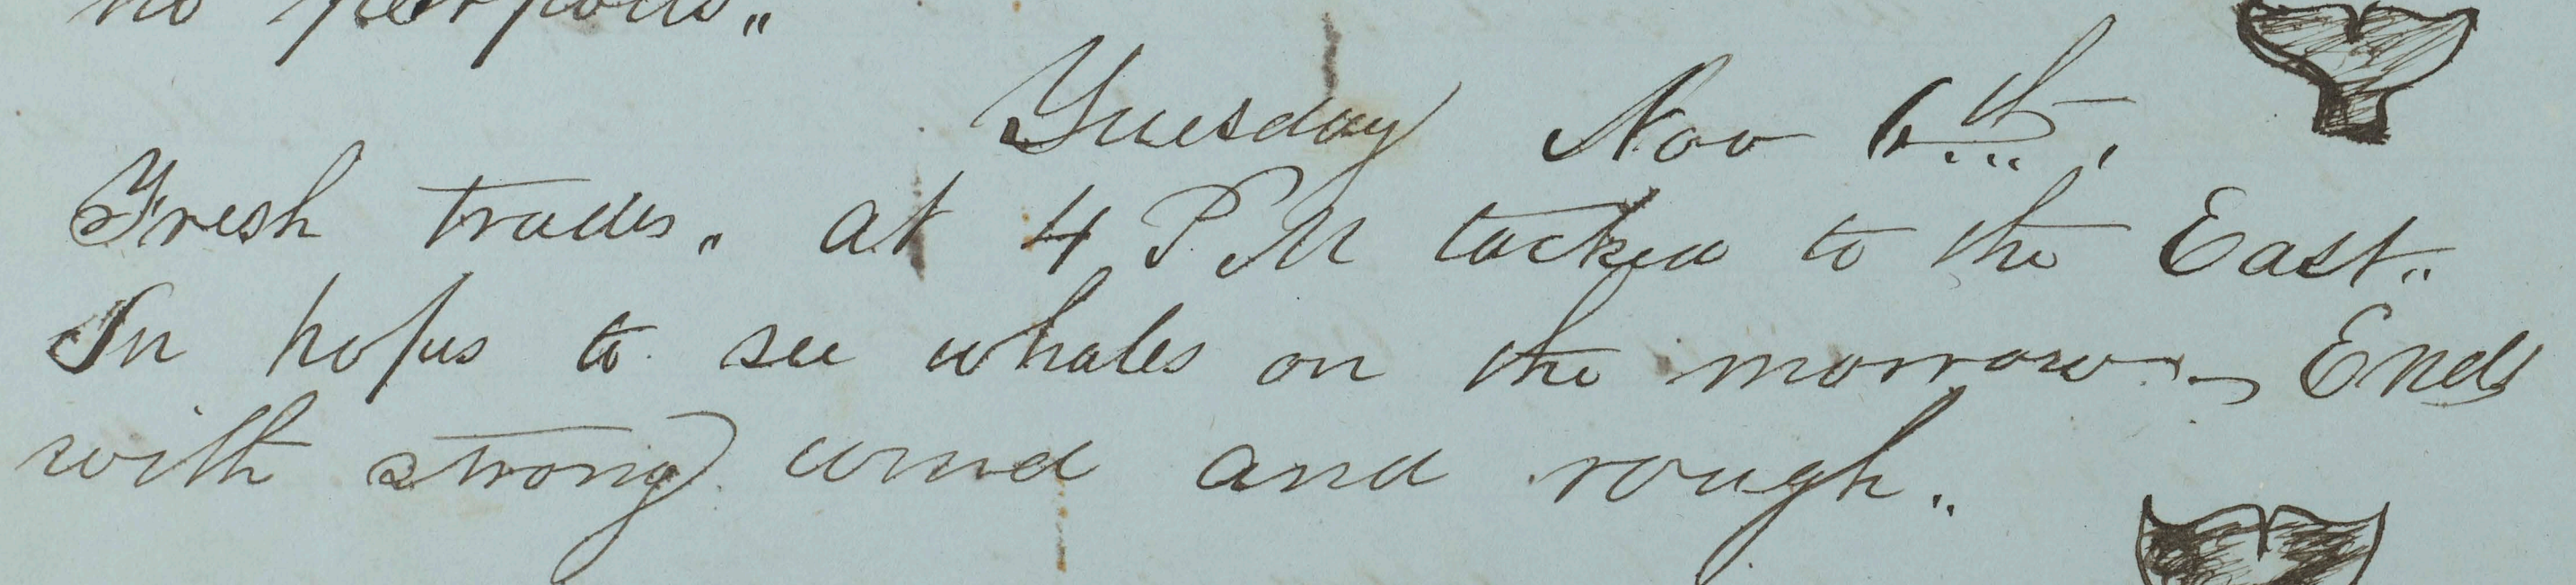 no
Tuesday Nov 6th.
Fresh trades. at 4 PM tacked to the East.
In hopes to see whales on the morrow. Ends
with strong wind and rough.